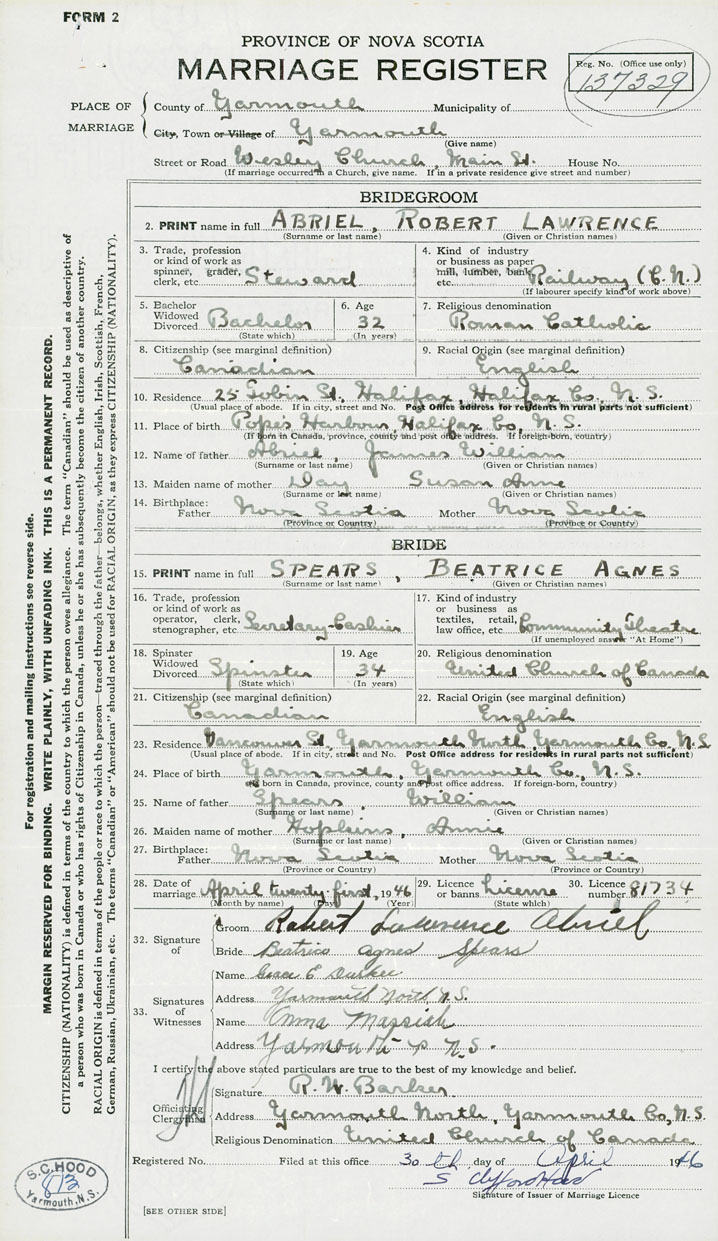 FORM 2
PROVINCE OF NOVA SCOTIA
MARRIAGE REGISTER
Reg. No. (Office use only)
137329
PLACE OF MARRIAGE
County of Yarmouth Municipality of
City, Town or Village of Yarmouth
(Give name)
Street or Road Wesley Church, Main St. House No.
(If marriage occurred in a Church, give name. If in a private residence give street and number)
BRIDEGROOM
2. PRINT name in full ABRIEL, ROBERT LAWRENCE
(Surname or last name) (Given or Christian names)
3. Trade, profession or kind of work as spinner, grader, clerk, etc. Steward
4. Kind of industry or business as paper mill, lumber, bank etc. Railway (C.N.)
(If labourer specify kind of work above)
5. Bachelor Widowed Divorced Bachelor
(State which)
6. Age 32
(In years)
7. Religious denomination
Roman Catholic
8. Citizenship (see marginal definition)
Canadian
9. Racial Origin (see marginal definition)
English
10. Residence 25 Tobin St., Halifax, Halifax Co., N.S.
(Usual place of abode. If in city, street and No. Post Office address for residents in rural parts not sufficient)
11. Place of birth Pope's Harbour, Halifax Co., N.S.
(If born in Canada, province, county and post office address. If foreign-born, country)
12. Name of father Abriel, James William
(Surname or last name) (Given or Christian names)
13. Maiden name of mother Day Susan Anne
(Surname or last name) (Given or Christian names)
14. Birthplace: Father Nova Scotia Mother Nova Scotia
(Province or Country) (Province or Country)
BRIDE
15. PRINT name in full SPEARS, BEATRICE AGNES
(Surname or last name) (Given or Christian names)
16. Trade, profession or kind of work as operator, clerk, stenographer, etc. Secretary-Cashier
17. Kind of industry or business as textiles, retail, law office, etc. Community Theatre
(If unemployed answer "At Home")
18. Spinster Widowed Divorced Spinster
(State which)
19. Age 34
(In years)
20. Religious denomination
United Church of Canada
21. Citizenship (see marginal definition)
Canadian
22. Racial Origin (see marginal definition)
English
23. Residence Vancouver St., Yarmouth North, Yarmouth Co., N.S.
(Usual place of abode. If in city, street and No. Post Office address for residents in rural parts not sufficient)
24. Place of birth Yarmouth, Yarmouth Co., N.S.
(If born in Canada, province, county and post office address. If foreign-born, country)
25. Name of father Spears, William
(Surname or last name) (Given or Christian names)
26. Maiden name of mother Hopkins, Annie
(Surname or last name) (Given or Christian names)
27. Birthplace: Father Nova Scotia Mother Nova Scotia
(Province or Country) (Province or Country)
28. Date of marriage April twenty-first, 1946
(Month by name) (Day) (Year)
29. Licence or banns License
(State which)
30. Licence number 81734
32. Signature of
Groom Robert Lawrence Abriel
Bride Beatrice Agnes Spears
33. Signatures of Witnesses
Name Grace E Durkee
Address Yarmouth North N.S.
Name Emma Massiah
Address Yarmouth N.S.
I certify the above stated particulars are true to the best of my knowledge and belief.
Officiating Clergyman
Signature R. W. Barker
Address Yarmouth North, Yarmouth Co., N.S.
Religious Denomination United Church of Canada
Registered No. Filed at this office 30th day of April 1946
S Clifford Hood
Signature of Issuer of Marriage Licence
[SEE OTHER SIDE]
S.C. HOOD
Yarmouth, N.S.
For registration and mailing instructions see reverse side.
MARGIN RESERVED FOR BINDING. WRITE PLAINLY, WITH UNFADING INK. THIS IS A PERMANENT RECORD.
CITIZENSHIP (NATIONALITY) is defined in terms of the country to which the person owes allegiance. The term "Canadian" should be used as descriptive of
a person who was born in Canada or who has rights of Citizenship in Canada, unless he or she has subsequently become the citizen of another country.
RACIAL ORIGIN is defined in terms of the people or race to which the person—traced through the father—belongs, whether English, Irish, Scottish, French,
German, Russian, Ukrainian, etc. The terms "Canadian" or "American" should not be used for RACIAL ORIGIN, as they express CITIZENSHIP (NATIONALITY).